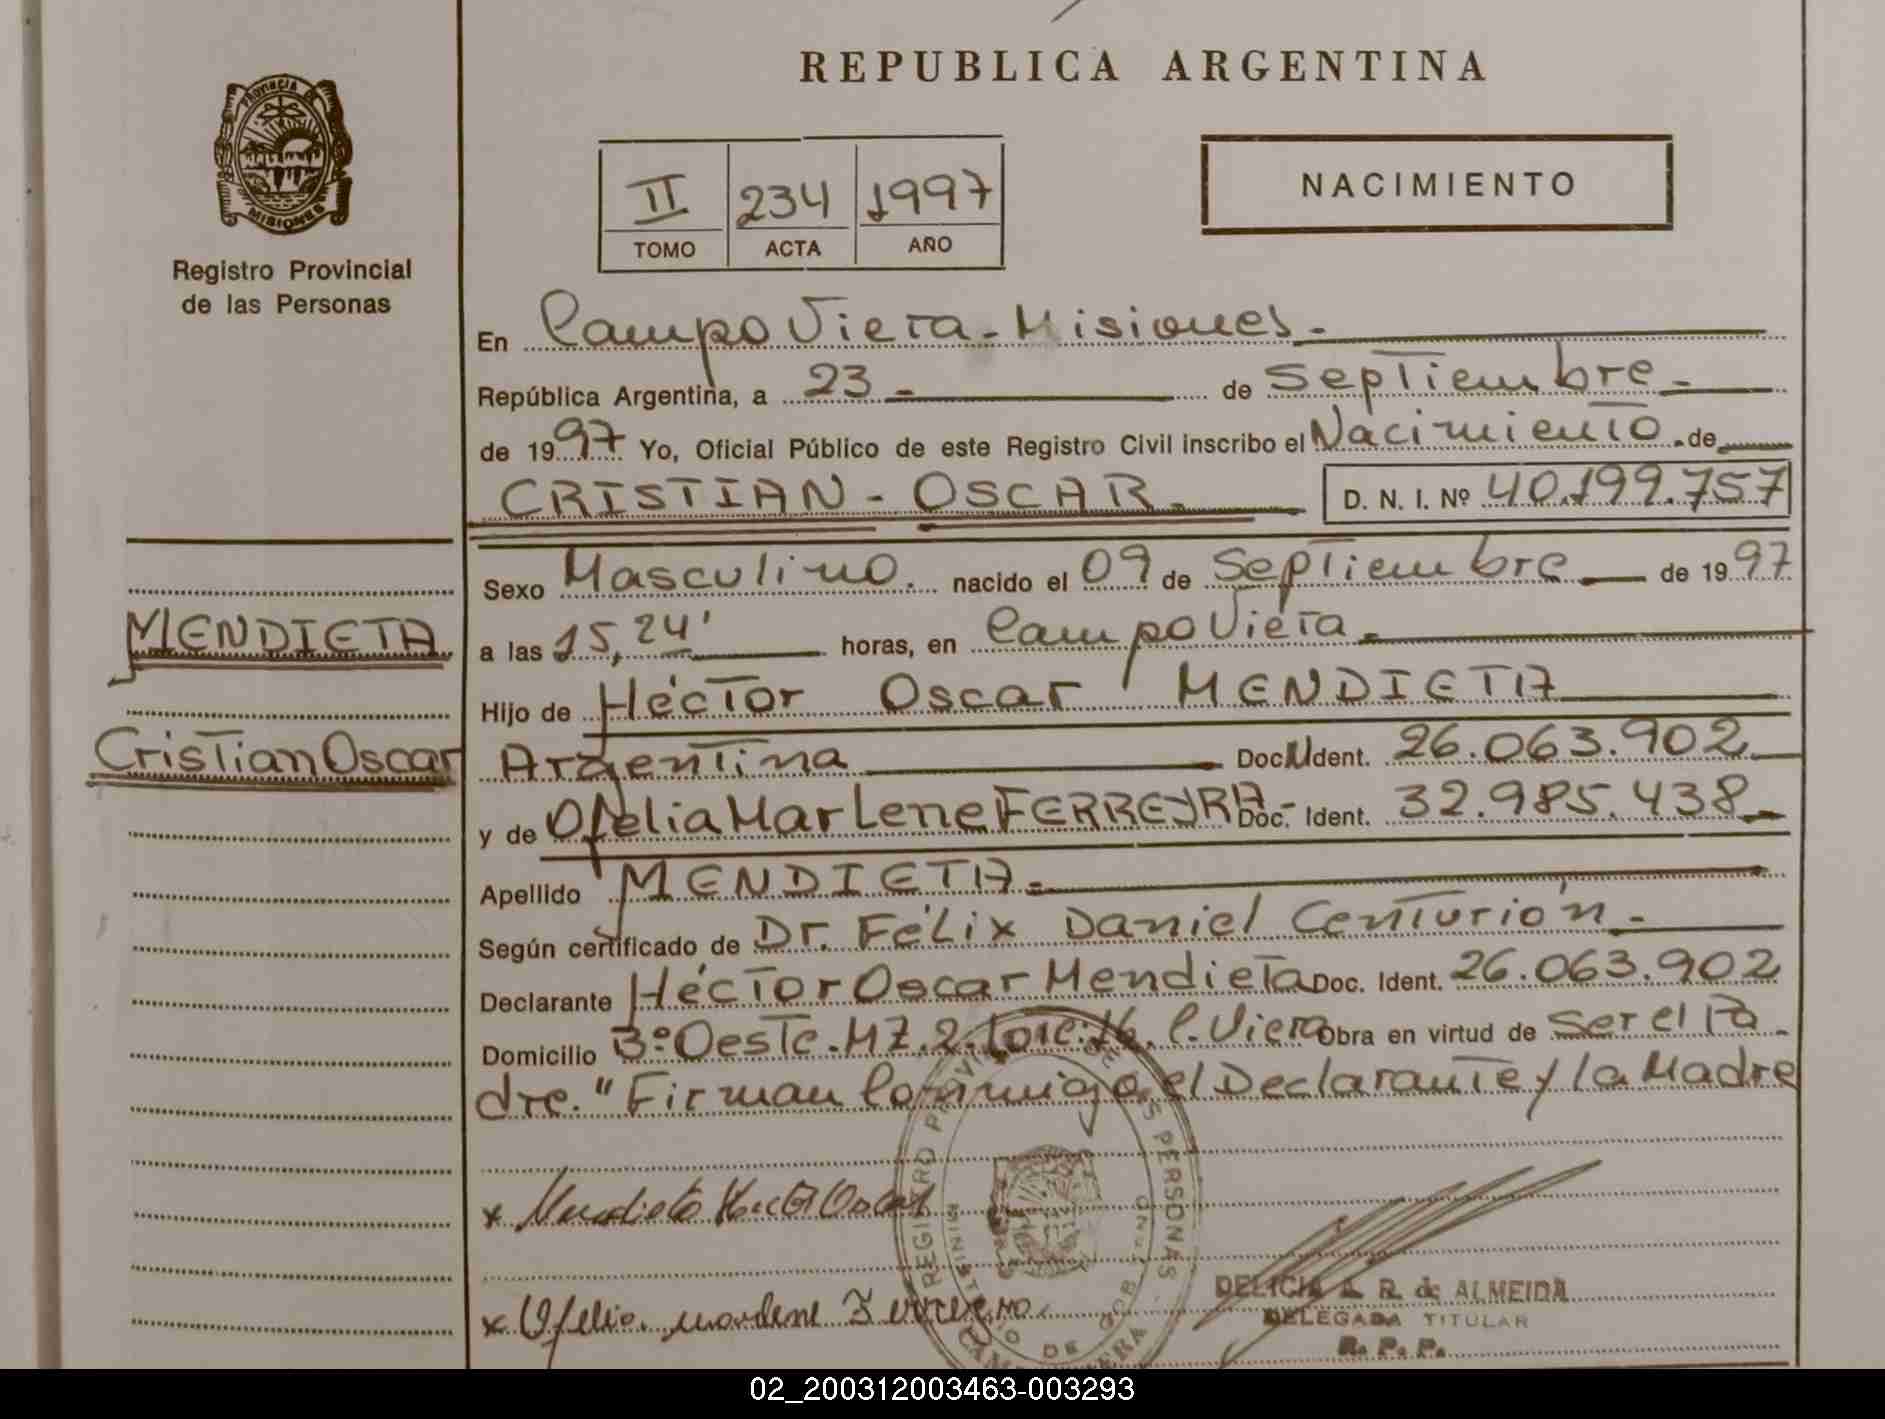 REPUBLICA ARGENTINA
PROVINCIA DE
MISIONES
Registro Provincial
de las Personas
II 234 1997
TOMO ACTA AÑO
NACIMIENTO
En Campo Viera - Misiones.
República Argentina, a 23 - de Septiembre -
de 1997 Yo, Oficial Público de este Registro Civil inscribo el Nacimiento. de
CRISTIAN - OSCAR. D. N. I. Nº 40.199.757
Sexo Masculino. nacido el 09 de Septiembre de 1997
MENDIETA
a las 15,24' horas, en Campo Viera.
Hijo de Héctor Oscar MENDIETA
Cristian Oscar
Argentina Doc N Ident. 26.063.902
y de Ofelia Marlene FERREYRA- Doc. Ident. 32.985.438
Apellido MENDIETA.
Según certificado de Dr. Félix Daniel Centurión.
Declarante Héctor Oscar Mendieta Doc. Ident. 26.063.902
Domicilio Bº Oeste. MZ. 2. Lote: 16. C. Viera Obra en virtud de ser el Pa-
dre. "Firman Conmigo el Declarante y la Madre
REGISTRO PROVINCIAL DE LAS PERSONAS
MINISTERIO DE GOBIERNO
CAMPO VIERA
x Mendieta Hector Oscar
x Ofelia. marlene Ferreyra.
DELICIA A. R. de ALMEIDA
DELEGADA TITULAR
R. P. P.
02_200312003463-003293